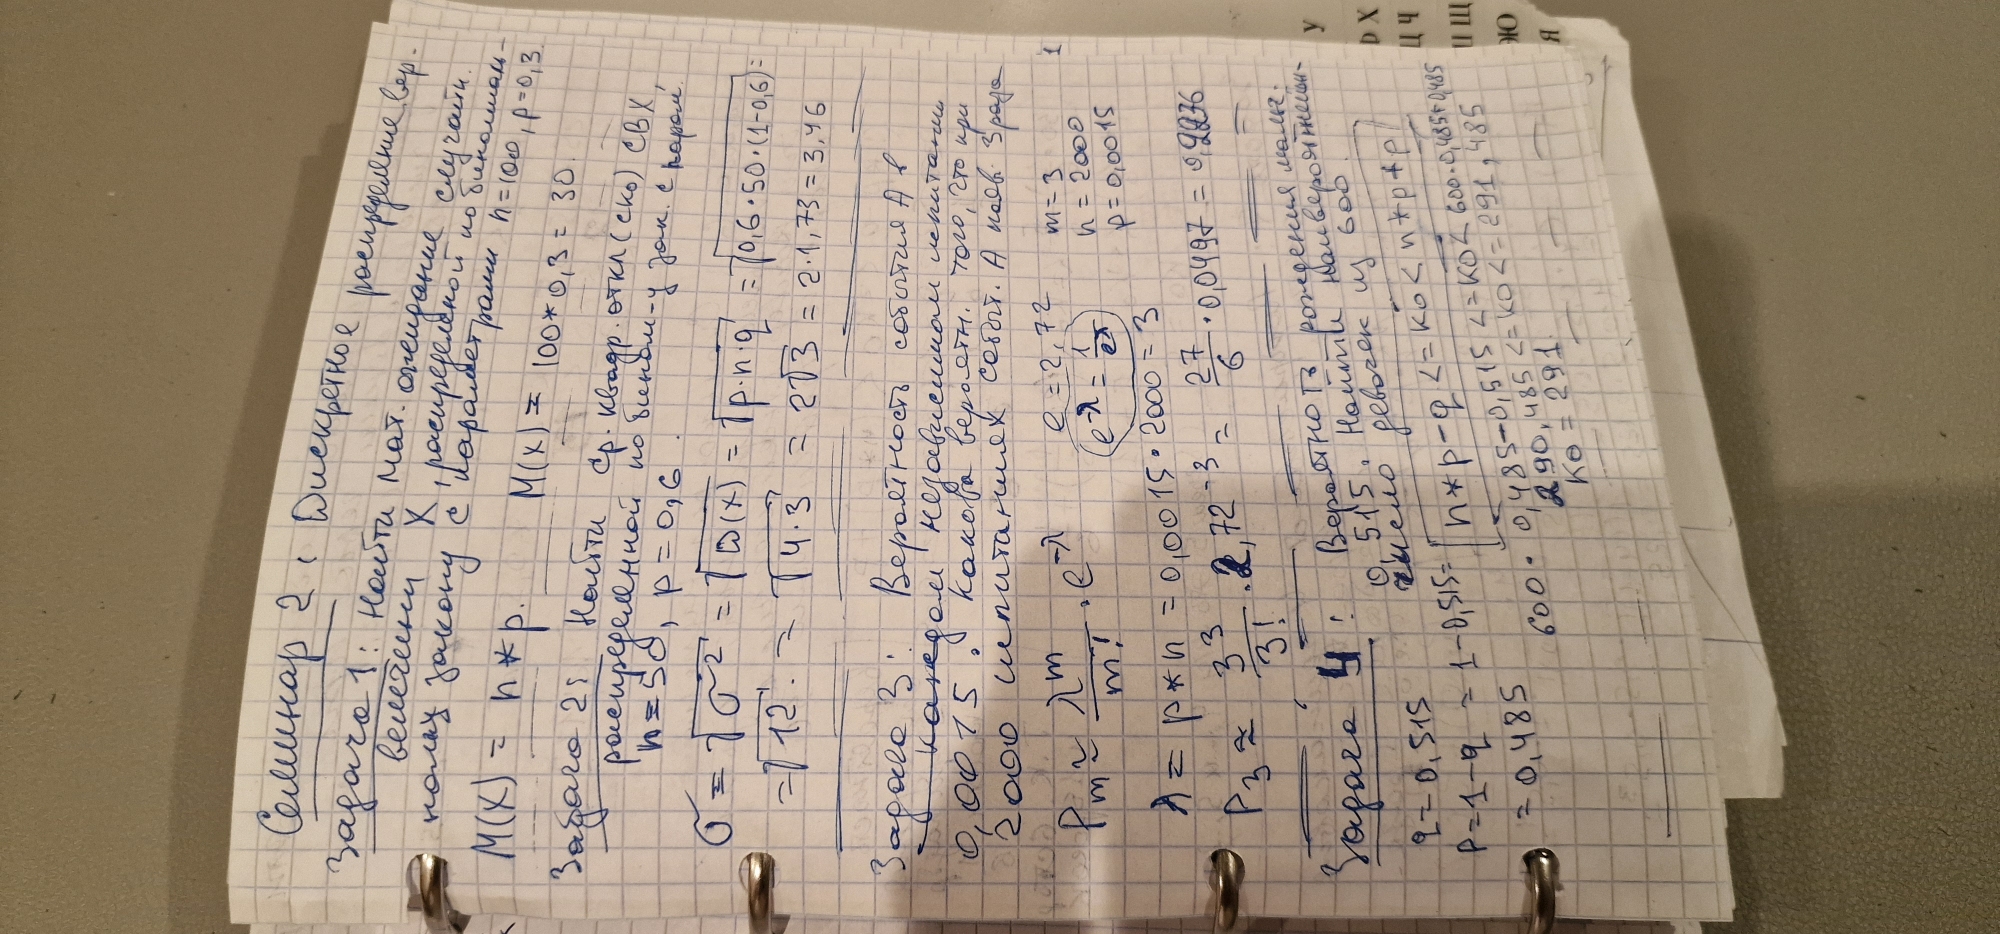 Семинар 2: Дискретное распределение вер.
Задача 1: Найти мат. ожидание случайн.
величины X, распределеной по биномиаль-
ному закону с параметрами n=100, p=0,3.
M(X) = n*p. M(X) = 100*0,3 = 30.
Задача 2: Найти ср. квадр. откл (ско) СВХ,
распределенной по бином-у зак. с парам.
n=50, p=0,6.
σ = √σ² = √D(X) = √p·n·q = √0,6·50·(1-0,6) =
= √12. = √4·3 = 2√3 = 2·1,73 = 3,46
Задача 3: Вероятность события A в
каждом независимом испытании
0,0015. Какова вероятн. того, что при
2000 испытаниях событ. A появ. 3 раза
Pm ≈ λ^m/m! · e^-λ e = 2,72 m=3 1
e^-λ = 1/e^λ n = 2000
p=0,0015
λ = p*n = 0,0015·2000 = 3
P3 ≈ 3³/3! · 2,72^-3 = 27/6 · 0,0497 = 0,2236
Задача 4: Вероятность рождения мальч.
0,515. Найти наивероятнейш-
число девочек из 600.
q = 0,515
n*p-q <= k0 < n*p+p
p=1-q = 1-0,515=
= 0,485
600·0,485-0,515 <= k0 < 600·0,485+0,485
290,485 <= k0 <= 291,485
k0 = 291.
У
Х
Ц Ч
Щ
Ю
Я